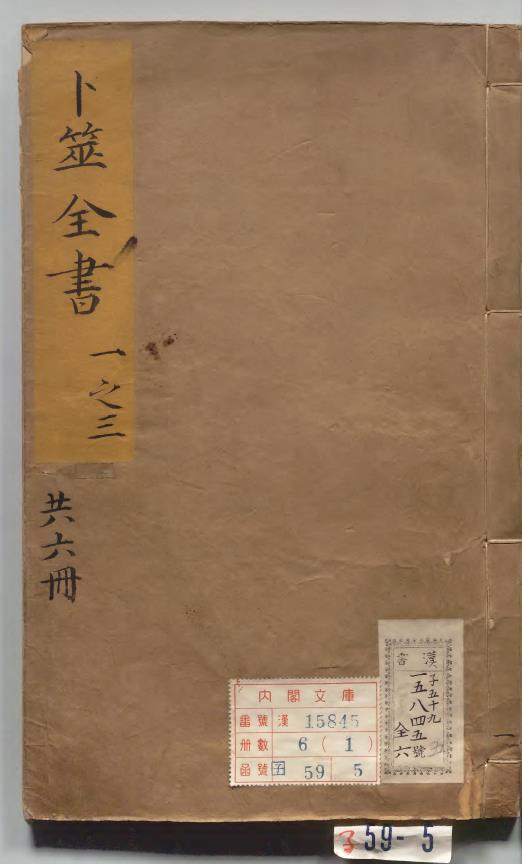 卜筮全書
一之三
共六冊
內閣文庫
番號 漢 15845
冊數 6 ( 1 )
函號 子 59 5
漢書
子五十九
一五八四五號
全六
一
子 59- 5